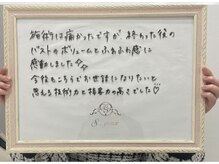 施術は痛かったですが 終わった後の
バストのボリュームとふわふわ感に
感動しました☆☆
今後もこちらでお世話になりたいと
思える技術力と接客力の高さでした♡